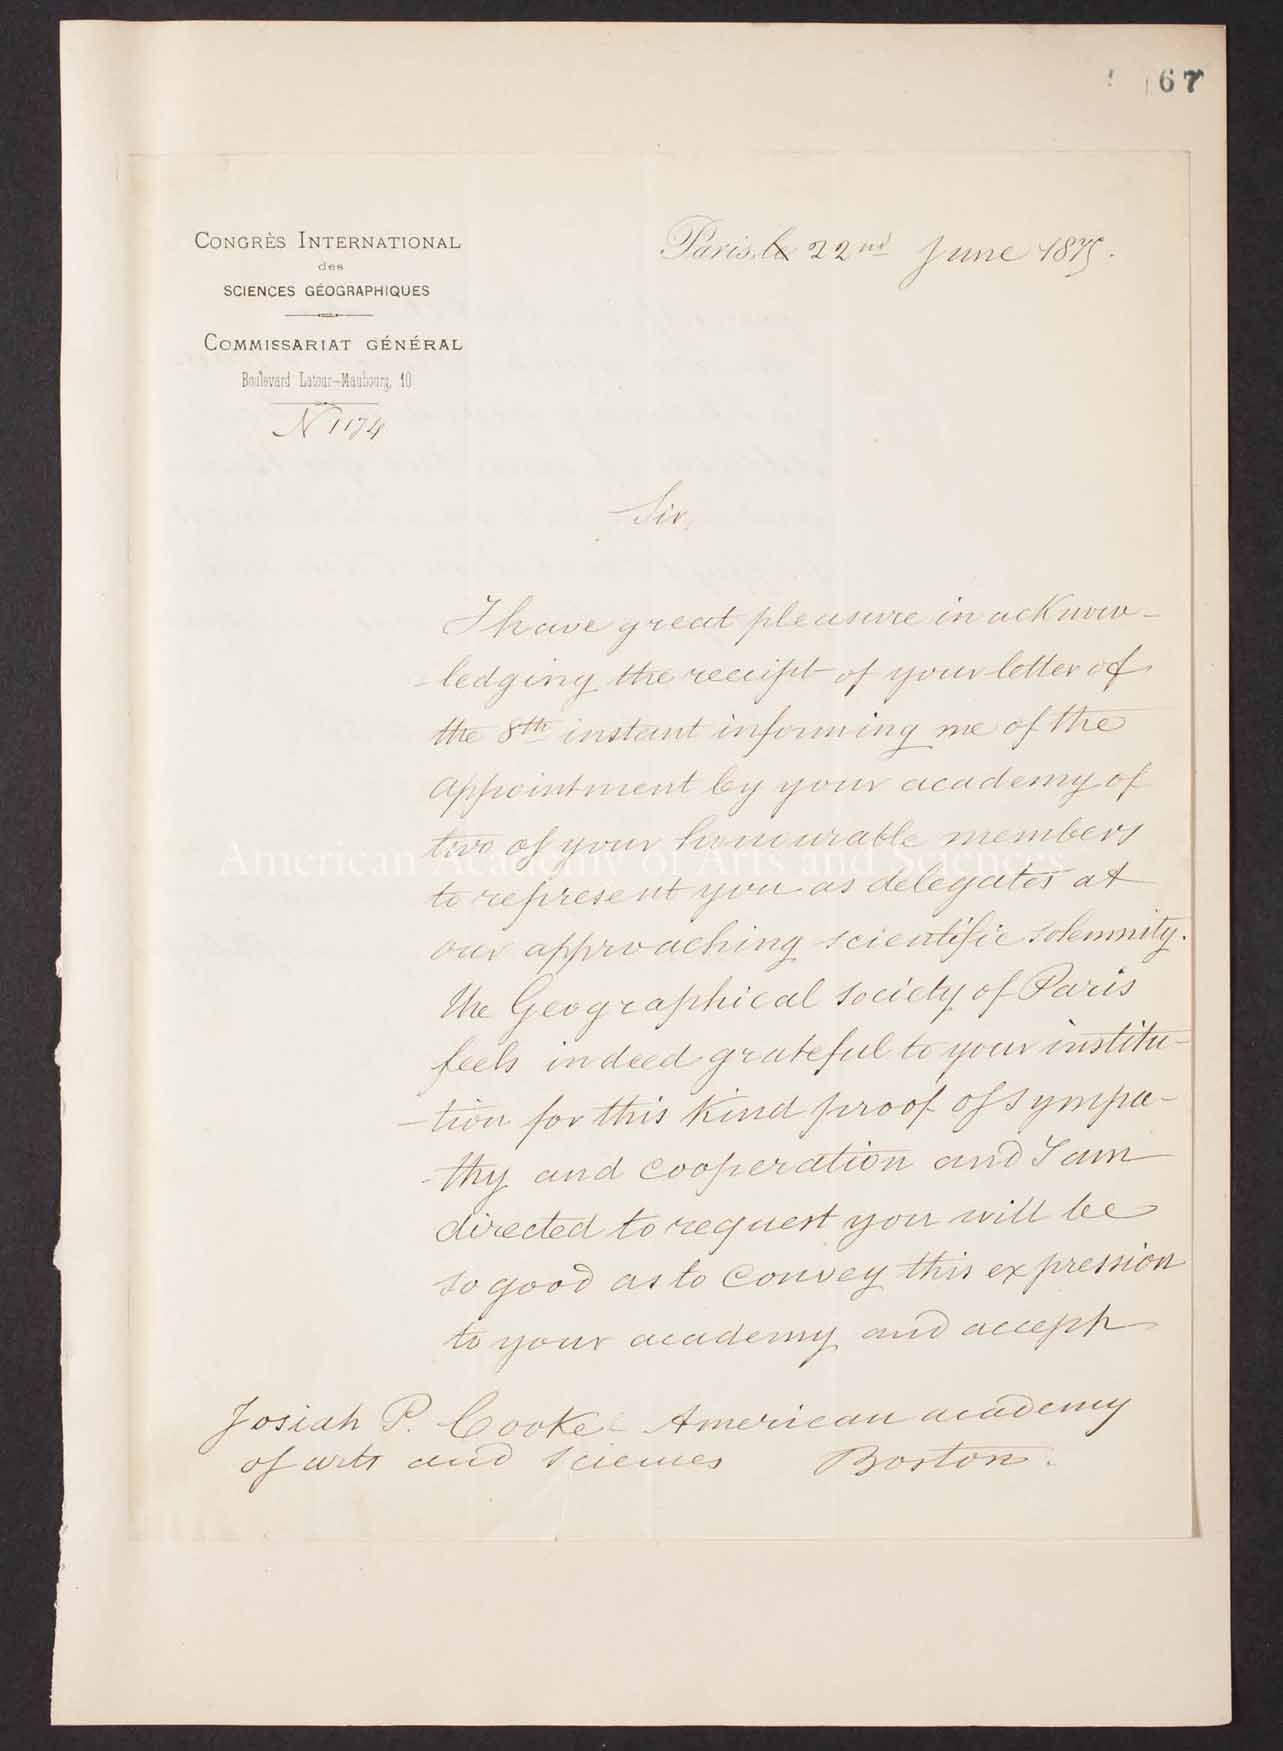 67
CONGRÈS INTERNATIONAL
des
SCIENCES GÉOGRAPHIQUES
COMMISSARIAT GÉNÉRAL
Boulevard Latour-Maubourg, 10
N 1174
Paris, le 22nd June 1875.
Sir,
I have great pleasure in acKnow-
-ledging the receipt of your letter of
the 8th instant informing me of the
appointment by your academy of
two of your honourable members
to represent you as delegates at
our approaching scientific solemnity.
The Geographical society of Paris
feels indeed grateful to your institu-
-tion for this Kind proof of sympa-
-thy and cooperation and I am
directed to request you will be
so good as to convey this expression
to your academy and accept
Josiah P. Cooke American academy
of arts and sciences Boston.
American Academy of Arts and Sciences